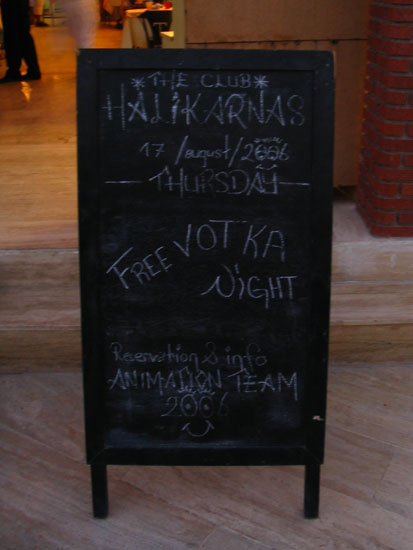 *THE CLUB*
HALIKARNAS
17/august/2006
THURSDAY
FREE VOTKA
NIGHT
Reservation & info
ANIMATION TEAM
2006